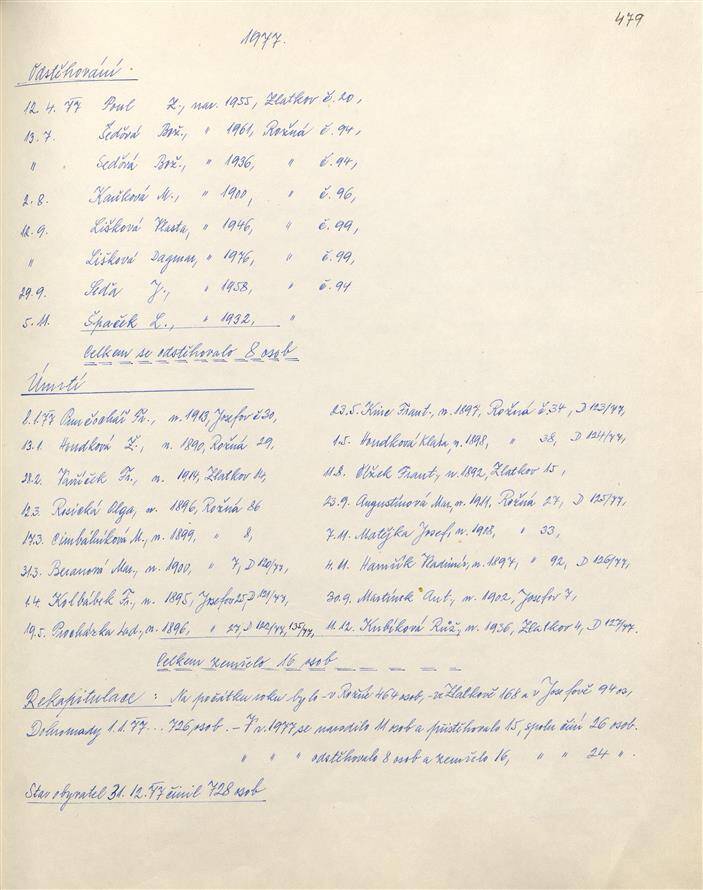 479
1977.
Odstěhování.
12.4.77 Poul Z., nar. 1955, Zlatkov č. 20,
13.7. Šeďová Bož., " 1961, Rožná č. 94,
" Šeďová Bož., " 1936, " č. 94,
2.8. Kaňková M., " 1900, " č. 96,
12.9. Lišková Vlasta, " 1946, " č. 99,
" Lišková Dagmar, " 1976, " č. 99,
29.9. Seďa J., " 1958, " č. 94
5.11. Špaček L., " 1932, "
Celkem se odstěhovalo 8 osob
Úmrtí
8.1.77 Fr., n. 1913, Josefov č. 30,
13.1. Hendková Z., n. 1890, Rožná 29,
28.2. Vaníček Fr., n. 1914, Zlatkov 14,
12.3. Rosická Olga, n. 1896, Rožná 86
17.3. Cimbálníková M., n. 1899, " 8,
31.3. Beranová Mar., n. 1900, " 7, D 120/77,
1.4. Kolbábek Fr., n. 1895, Josefov 25, D 121/77,
19.5. Procházka Lad., n. 1896, " 27, D 122/77, 135/77,
23.5. Frant., n. 1897, Rožná č. 34, D 123/77,
1.5. Hendková n. 1898, " 38, D 124/77,
11.8. Frant., n. 1892, Zlatkov 15,
23.9. Augustinová Mar., n. 1911, Rožná 27, D 125/77,
7.11. Matějka Josef, n. 1908, " 33,
4.11. Hamšík Vladimír, n. 1897, " 92, D 126/77,
30.9. Martínek Ant., n. 1902, Josefov 7,
11.12. Kubíková Růž., n. 1936, Zlatkov 4, D 127/77.
Celkem zemřelo 16 osob
Rekapitulace: Na počátku roku bylo - v Rožné 464 osob, - v Zlatkově 168 a v Josefově 94 os,
Dohromady 1.1.77.. 726 osob. - V r. 1977 se narodilo 11 osob a přistěhovalo 15, spolu činí 26 osob.
" " " odstěhovalo 8 osob a zemřelo 16, " " 24 ".
Stav obyvatel 31.12.77 činil 728 osob